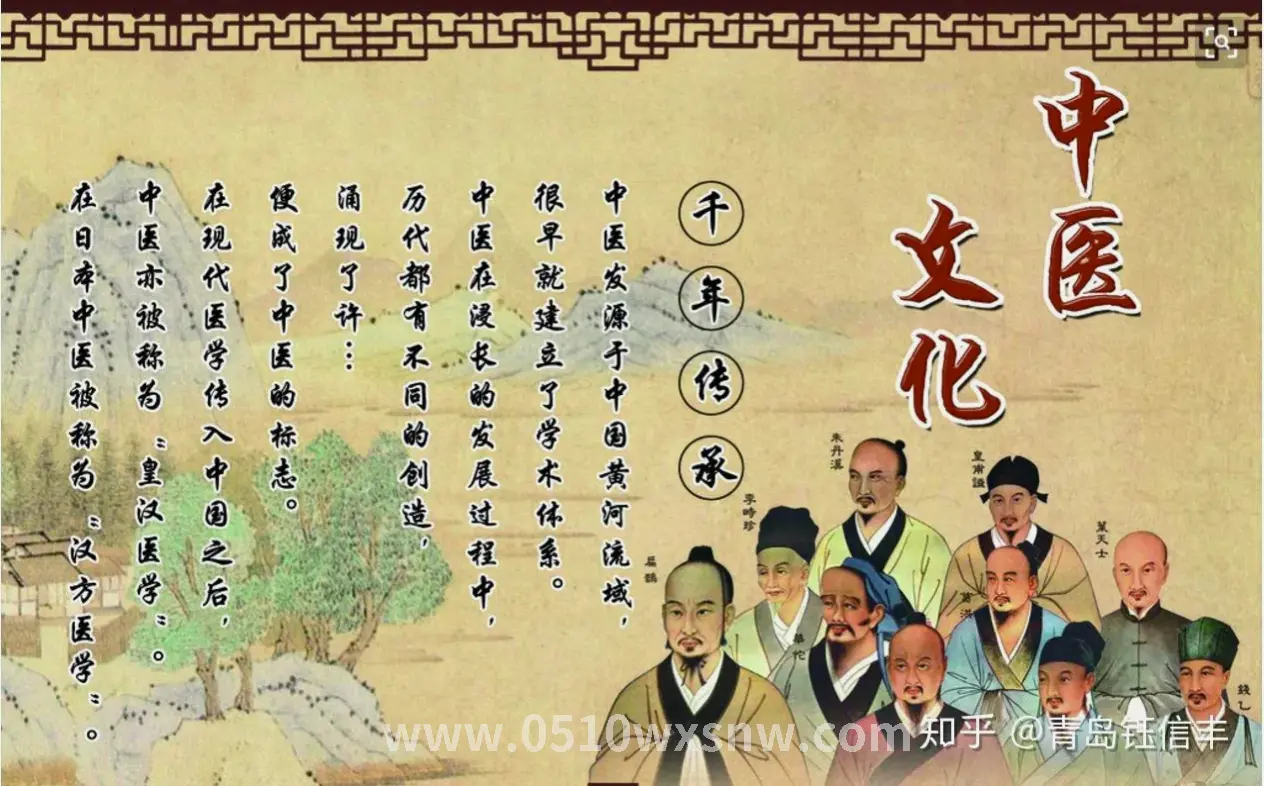 中医
文化
千年传承
中医发源于中国黄河流域，
很早就建立了学术体系。
中医在浸长的发展过程中，
历代都有不同的创造，
涌现了许…
便成了中医的标志。
在现代医学传入中国之后，
中医亦被称为“皇汉医学”。
在日本中医被称为“汉方医学”。
皇甫謐
朱丹溪
葉天士
李時珍
扁鵲
葛洪
華佗
錢乙
www.0510wxsnw.com
知乎 @青岛钰信丰